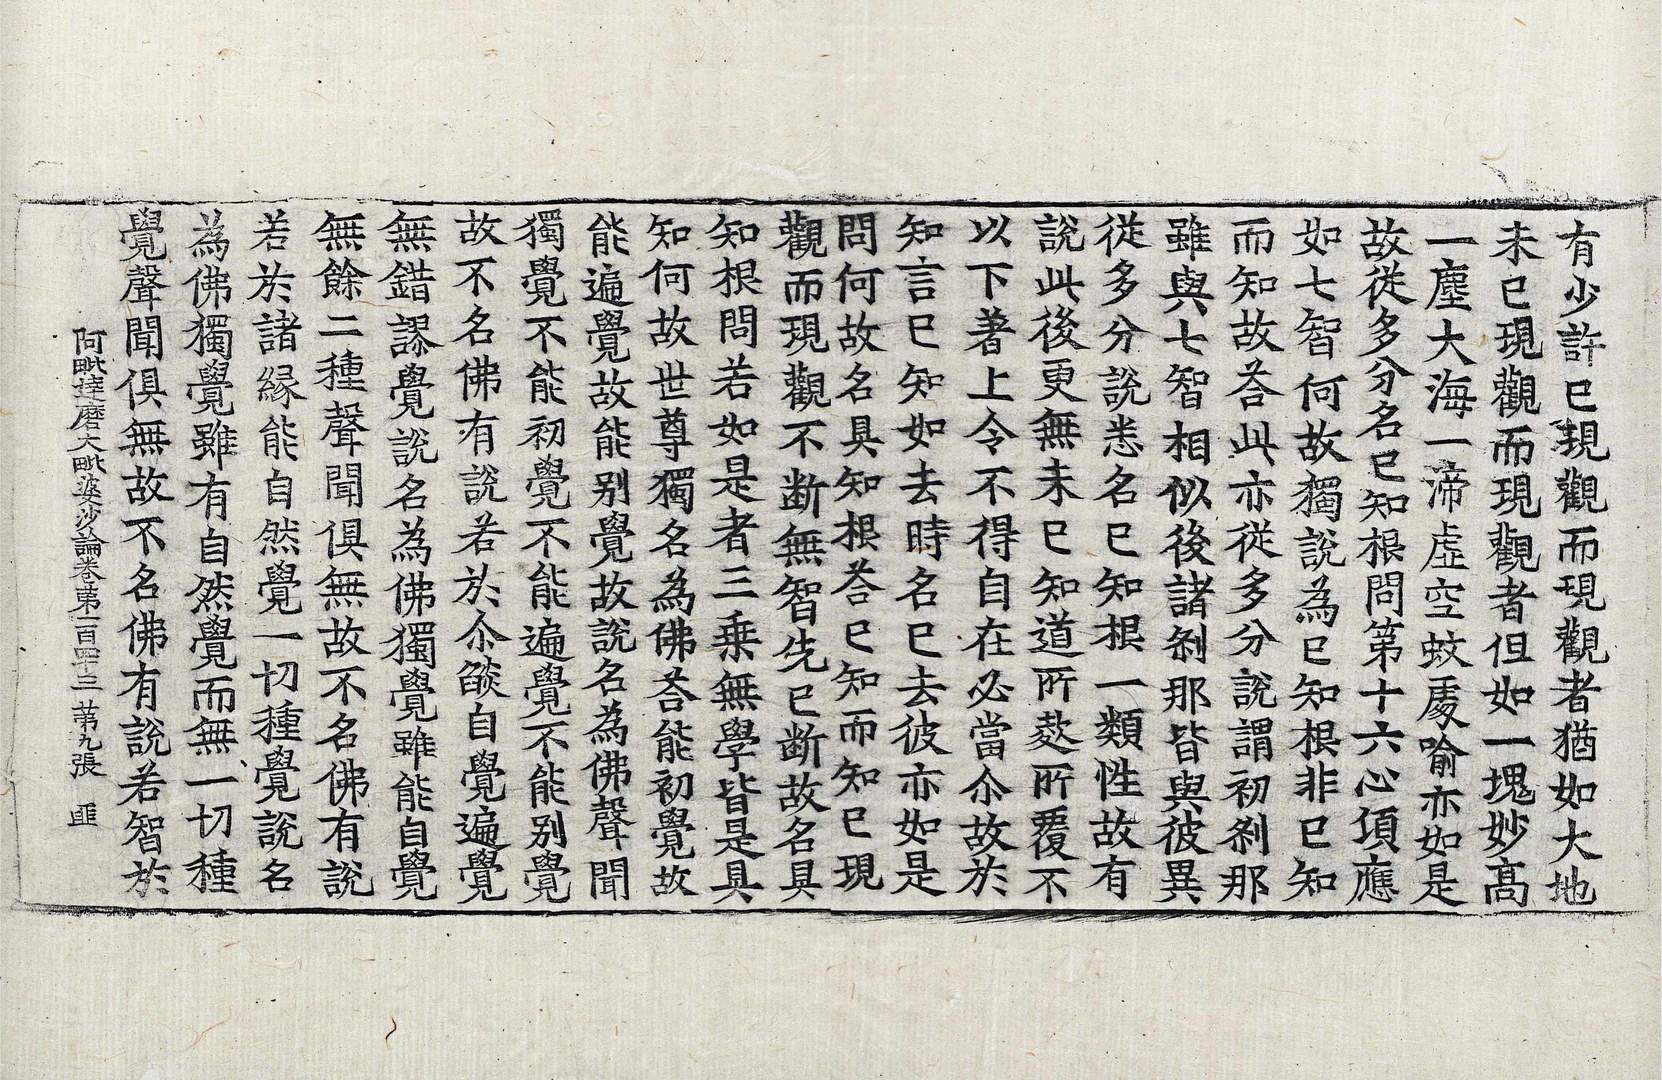 有少許已現觀而現觀者猶如大地
未已現觀而現觀者但如一塊妙高
一塵大海一渧虛空蚊處喻亦如是
故從多分名已知根問第十六心頃應
如七智何故獨說為已知根非已知
而知故荅此亦從多分說謂初剎那
雖與七智相似後諸剎那皆與彼異
從多分說悉名已知根一類性故有
說此後更無未已知道所蔽所覆不
以下著上令不得自在必當尒故於
知言已知如去時名已去彼亦如是
問何故名具知根荅已知而知已現
觀而現觀不断無智先已断故名具
知根問若如是者三乗無學皆是具
知何故世尊獨名為佛荅能初覺故
能遍覺故能別覺故說名為佛聲聞
獨覺不能初覺不能遍覺不能別覺
故不名佛有說若於尒燄自覺遍覺
無錯謬覺說名為佛獨覺雖能自覺
無餘二種聲聞俱無故不名佛有說
若於諸緣能自然覺一切種覺說名
為佛獨覺雖有自然覺而無一切種
覺聲聞俱無故不名佛有說若智於
阿毗達磨大毗婆沙論卷第一百四十三 第九張 匪